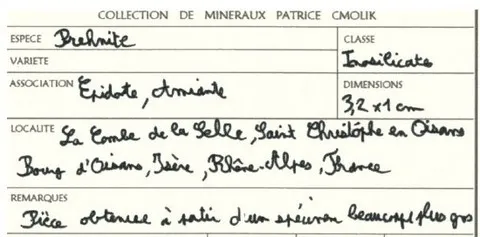 COLLECTION DE MINERAUX PATRICE CMOLIK
ESPECE Prehnite
CLASSE
Inosilicate
VARIETE
ASSOCIATION Epidote, Amiante
DIMENSIONS
3,2 x 1 cm
LOCALITE La Combe de la Selle, Saint Christôphe en Oisans
Bourg d'Oisans, Isère, Rhône-Alpes, France
REMARQUES
Pièce obtenue à partir d'un spécimen beaucoup plus gros